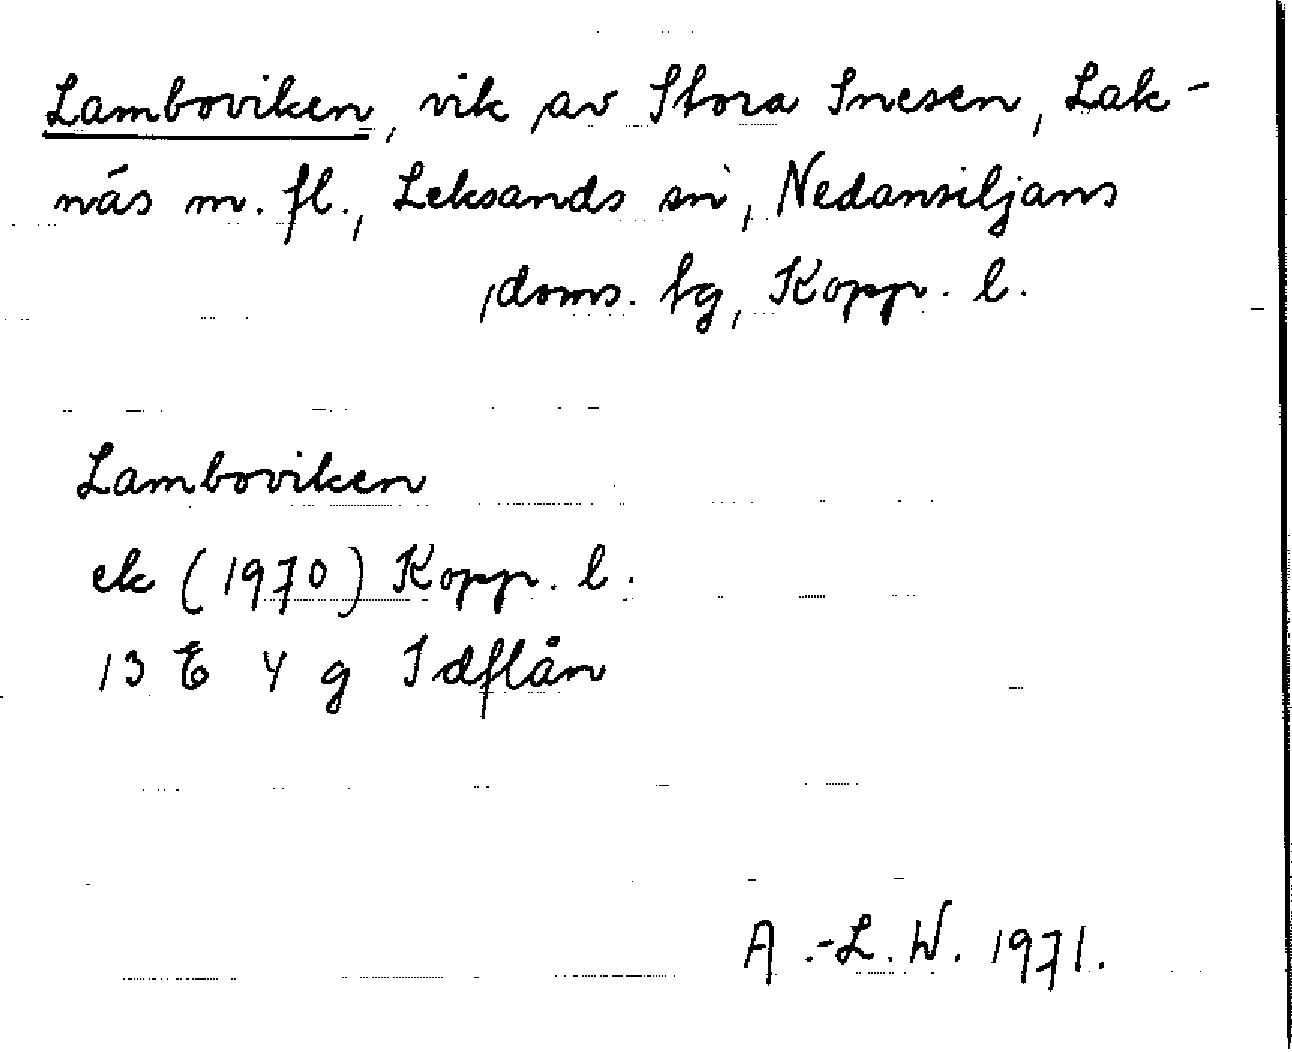 Lamboviken, vik av Stora Snesen, Lak-
näs m. fl., Leksands sn, Nedansiljans
doms. tg, Kopp. l.
Lamboviken
ek (1970) Kopp. l.
13 E 4 g Idflån
A.-L. W. 1971.